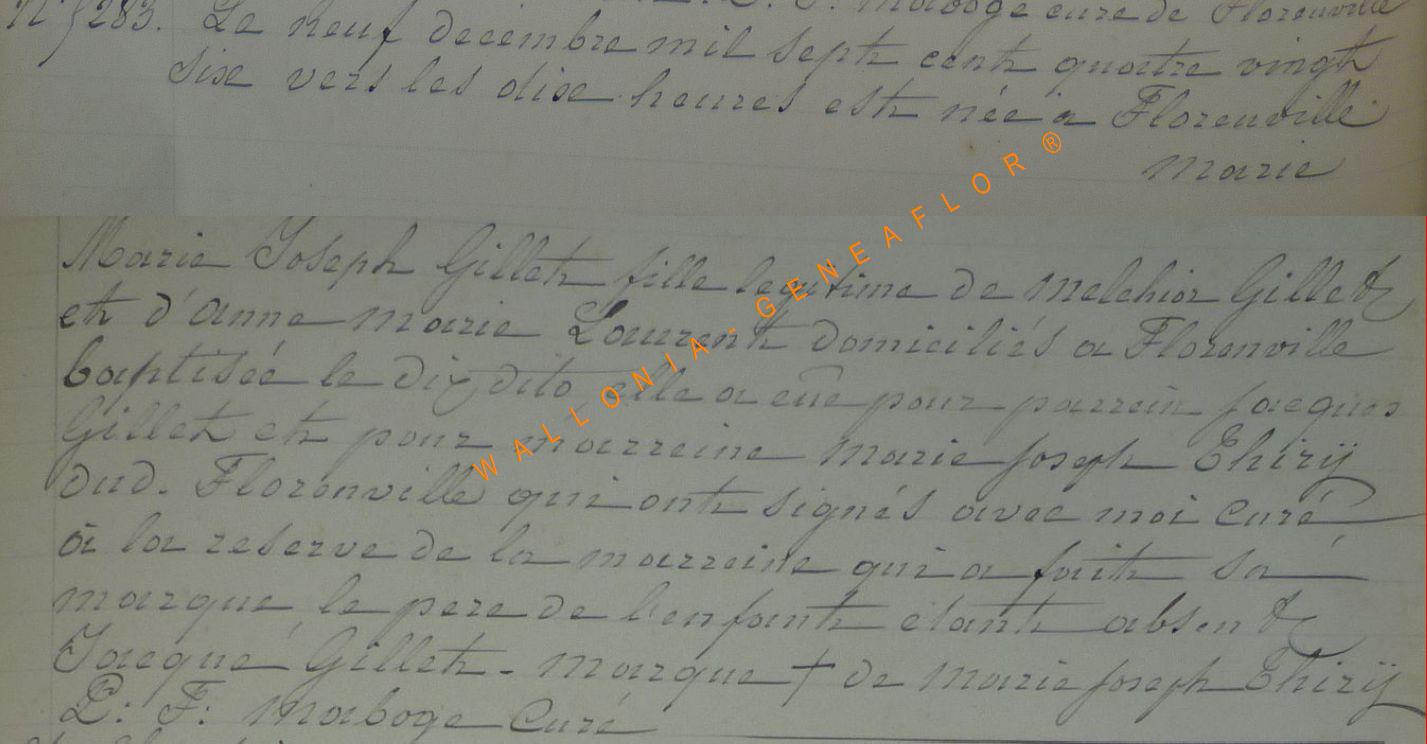 N° 5283. Le neuf decembre mil sept cent quatre vingt
Curé de Florenville
Sixe vers les dixe heures est née a Florenville
Marie
Marie Joseph Gillet fille legitime de Melchior Gillet
et d'anne marie Laurent domiciliés a Florenville
baptisée le dix dito, elle a eûe pour parrein Jacques
Gillet et pour marreine Marie Joseph Thirÿ
dud. Florenville qui ont signés avec moi Curé
à la reserve de la marreine qui a fait sa
marque, le pere de l'enfant etant absent
Jacque Gillet - marque † de Marie Joseph Thirÿ
P: F: Maboge Curé
WALLONIA-GENEAFLOR®